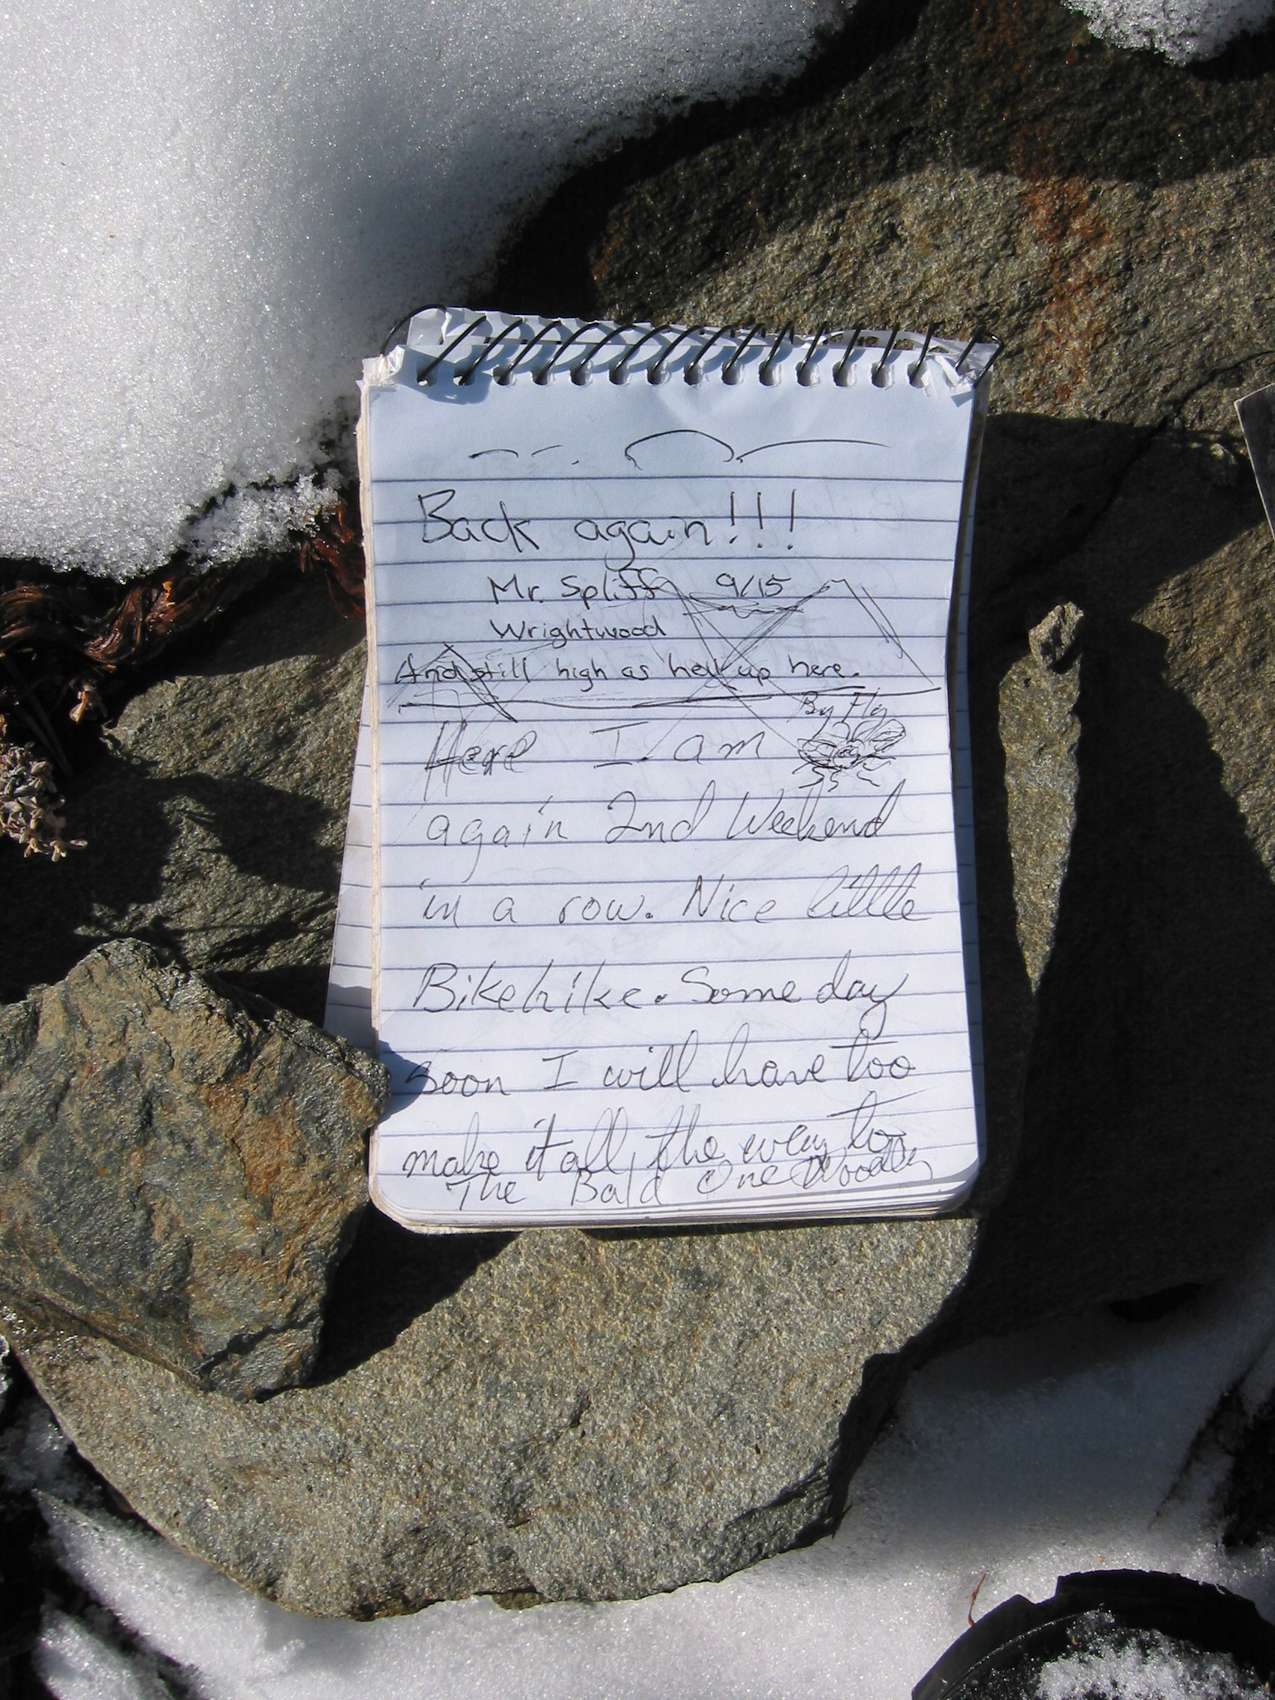 Back again!!!
Mr. Spliff 9/15
Wrightwood
And still high as hell up here.
By Fly
Here I am
again 2nd Weekend
in a row. Nice little
Bikehike. Some day
soon I will have too
make it all the way to
The Bald One Woody